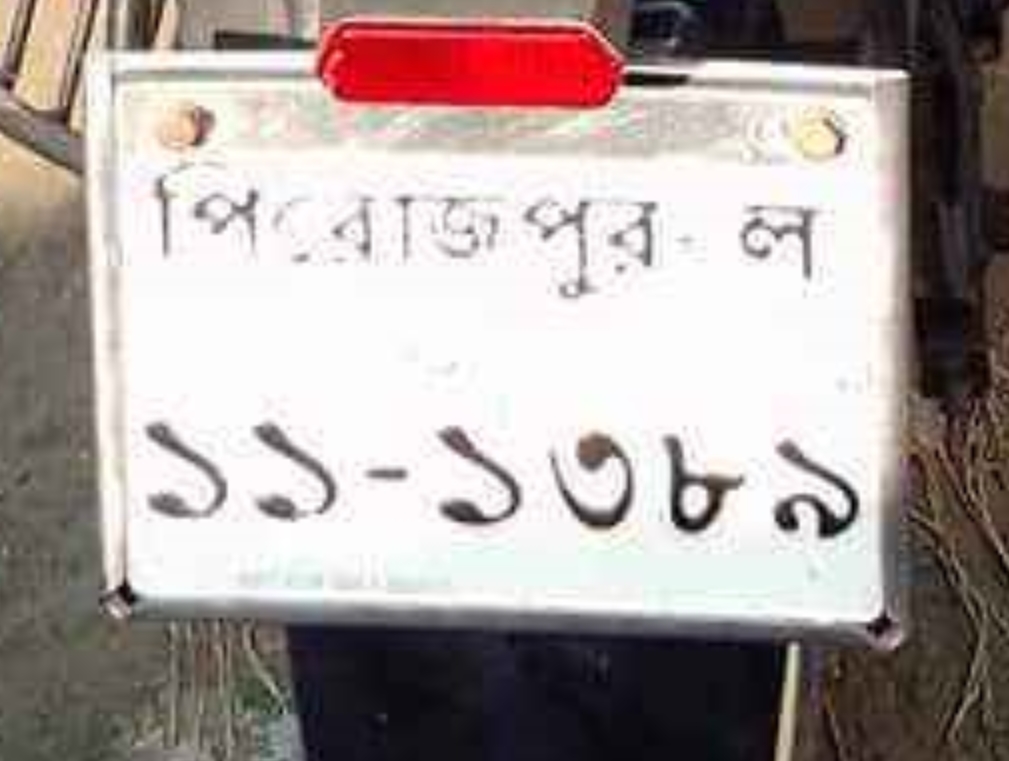 পিরোজপুর- ল
১১-১৩৮৯